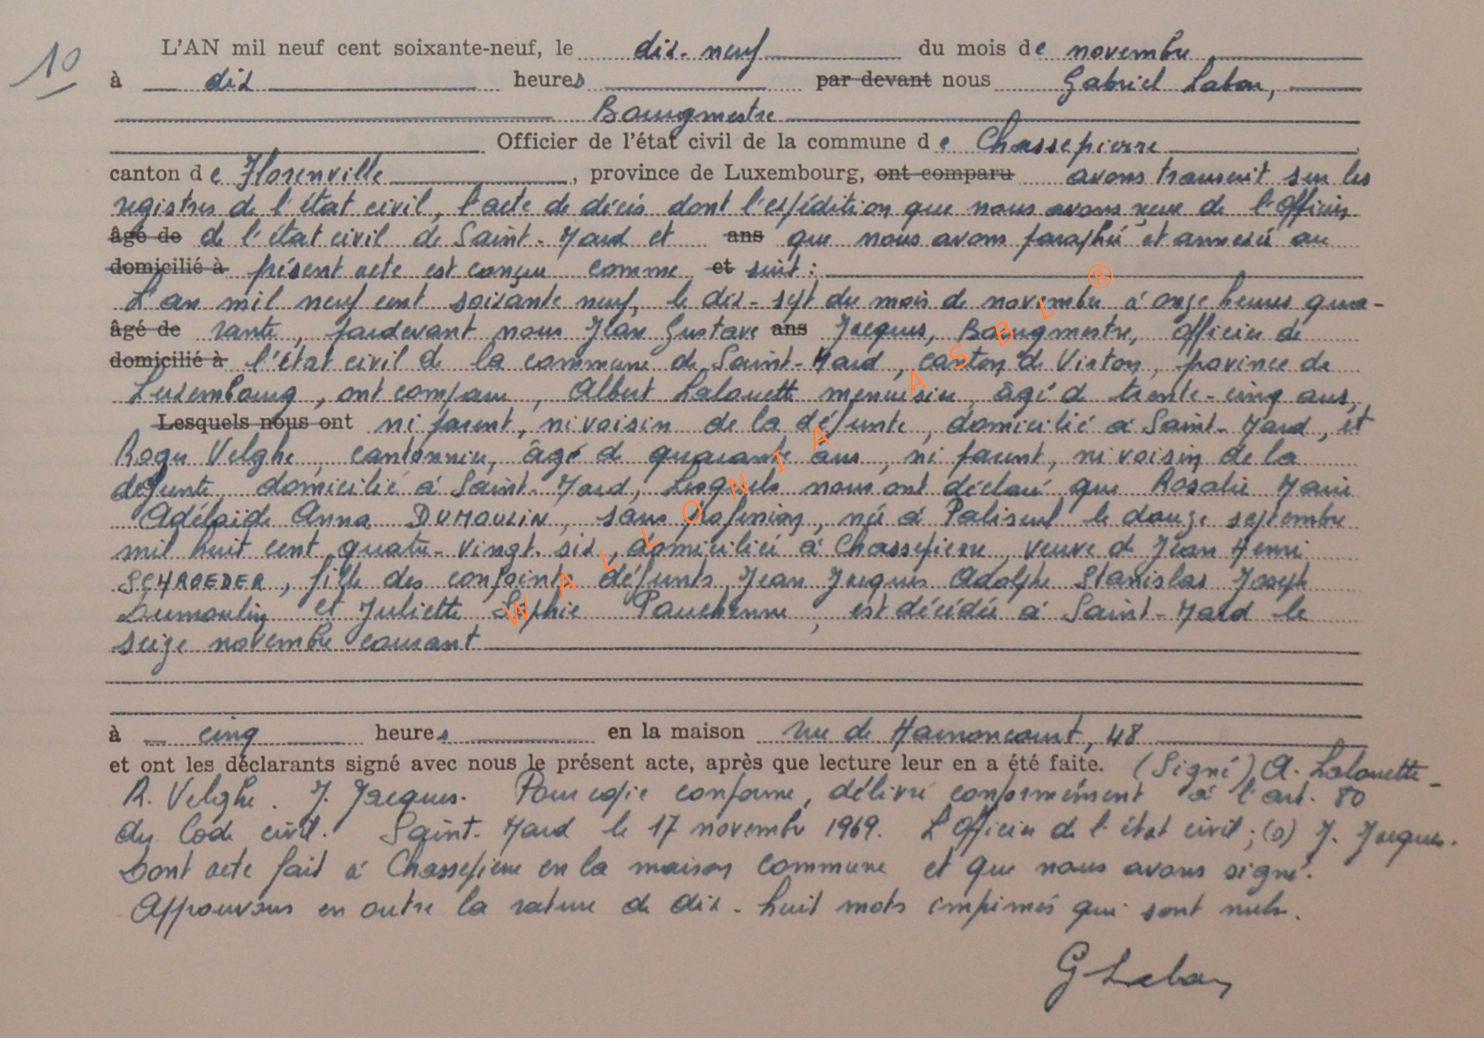 10
L'AN mil neuf cent soixante-neuf, le dix-neuf du mois de novembre
à dix heures par devant nous Gabriel Laban,
Bourgmestre
Officier de l'état civil de la commune de Chassepierre
canton de Florenville, province de Luxembourg, ont comparu avons transcrit sur les
registres de l'état civil, l'acte de décès dont l'expédition que nous avons reçue de l'Officier
âgé de de l'état civil de Saint-Mard et ans que nous avons paraphée et annexée au
domicilié à présent acte est conçu comme et suit :
L'an mil neuf cent soixante neuf, le dix-sept du mois de novembre à onze heures qua-
âgé de rante, pardevant nous Jean Gustave ans Jacques, Bourgmestre, Officier de
domicilié à l'état civil de la commune de Saint-Mard, canton de Virton, province de
Luxembourg, ont comparu, Albert Lalouette menuisier, âgé d trente-cinq ans,
Lesquels nous ont ni parent, ni voisin de la défunte, domicilié à Saint-Mard, et
Roger Velghe, cantonnier, âgé de quarante ans, ni parent, ni voisin de la
défunte, domicilié à Saint-Mard, Lesquels nous ont déclaré que Rosalie Marie
Adélaïde Anna DUMOULIN, sans profession, née à Paliseul le douze septembre
mil huit cent quatre-vingt-six, domiciliée à Chassepierre, veuve de Jean Henri
SCHROEDER, fille des conjoints défunts Jean Jacques Adolphe Stanislas Joseph
Dumoulin et Juliette Sophie Pauchenne, est décédée à Saint-Mard le
seize novembre courant
à cinq heures en la maison rue de Harnoncourt, 48
et ont les déclarants signé avec nous le présent acte, après que lecture leur en a été faite. (Signé) A. Lalouette -
R. Velghe. J. Jacques. Pour copie conforme, délivré conformément à l'art. 80
du Code civil. Saint-Mard le 17 novembre 1969. L'Officier de l'état civil; (s) J. Jacques.
Dont acte fait à Chassepierre en la maison commune et que nous avons signé.
Approuvons en outre la rature de dix-huit mots imprimés qui sont nuls.
G Laban
WALLONIA ASBL ®